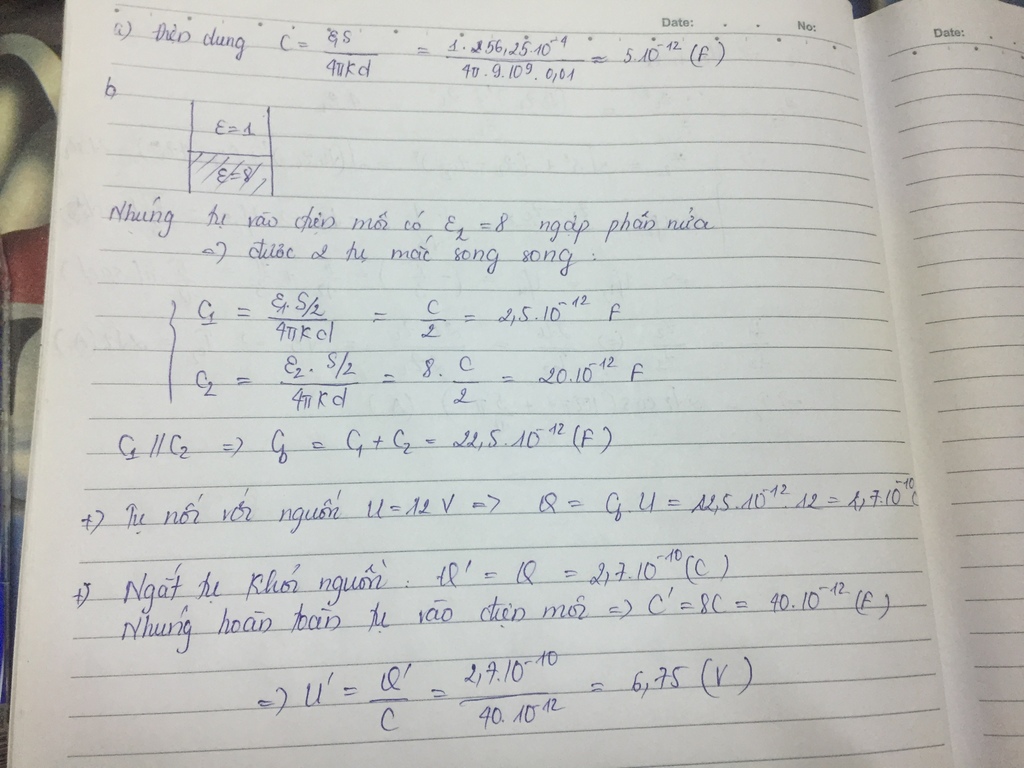 Date: No:
Date:
a) Điện dung C = εS / 4πKd = 1.256,25.10⁻⁴ / 4π.9.10⁹.0,01 = 5.10⁻¹² (F)
b)
ε=1
ε=8
Nhúng tụ vào điện môi có ε₂ = 8 ngập phân nửa
=> được 2 tụ mắc song song :
C₁ = ε₁.S/2 / 4πKd = C/2 = 2,5.10⁻¹² F
C₂ = ε₂.S/2 / 4πKd = 8.C/2 = 20.10⁻¹² F
C₁ // C₂ => Cb = C₁ + C₂ = 22,5.10⁻¹² (F)
+) Tụ nối với nguồn U = 12 V => Q = Cb.U = 22,5.10⁻¹².12 = 2,7.10⁻¹⁰ (
+) Ngắt tụ khỏi nguồn : Q' = Q = 2,7.10⁻¹⁰ (C)
Nhúng hoàn toàn tụ vào điện môi => C' = 8C = 40.10⁻¹² (F)
=> U' = Q'/C = 2,7.10⁻¹⁰ / 40.10⁻¹² = 6,75 (V)